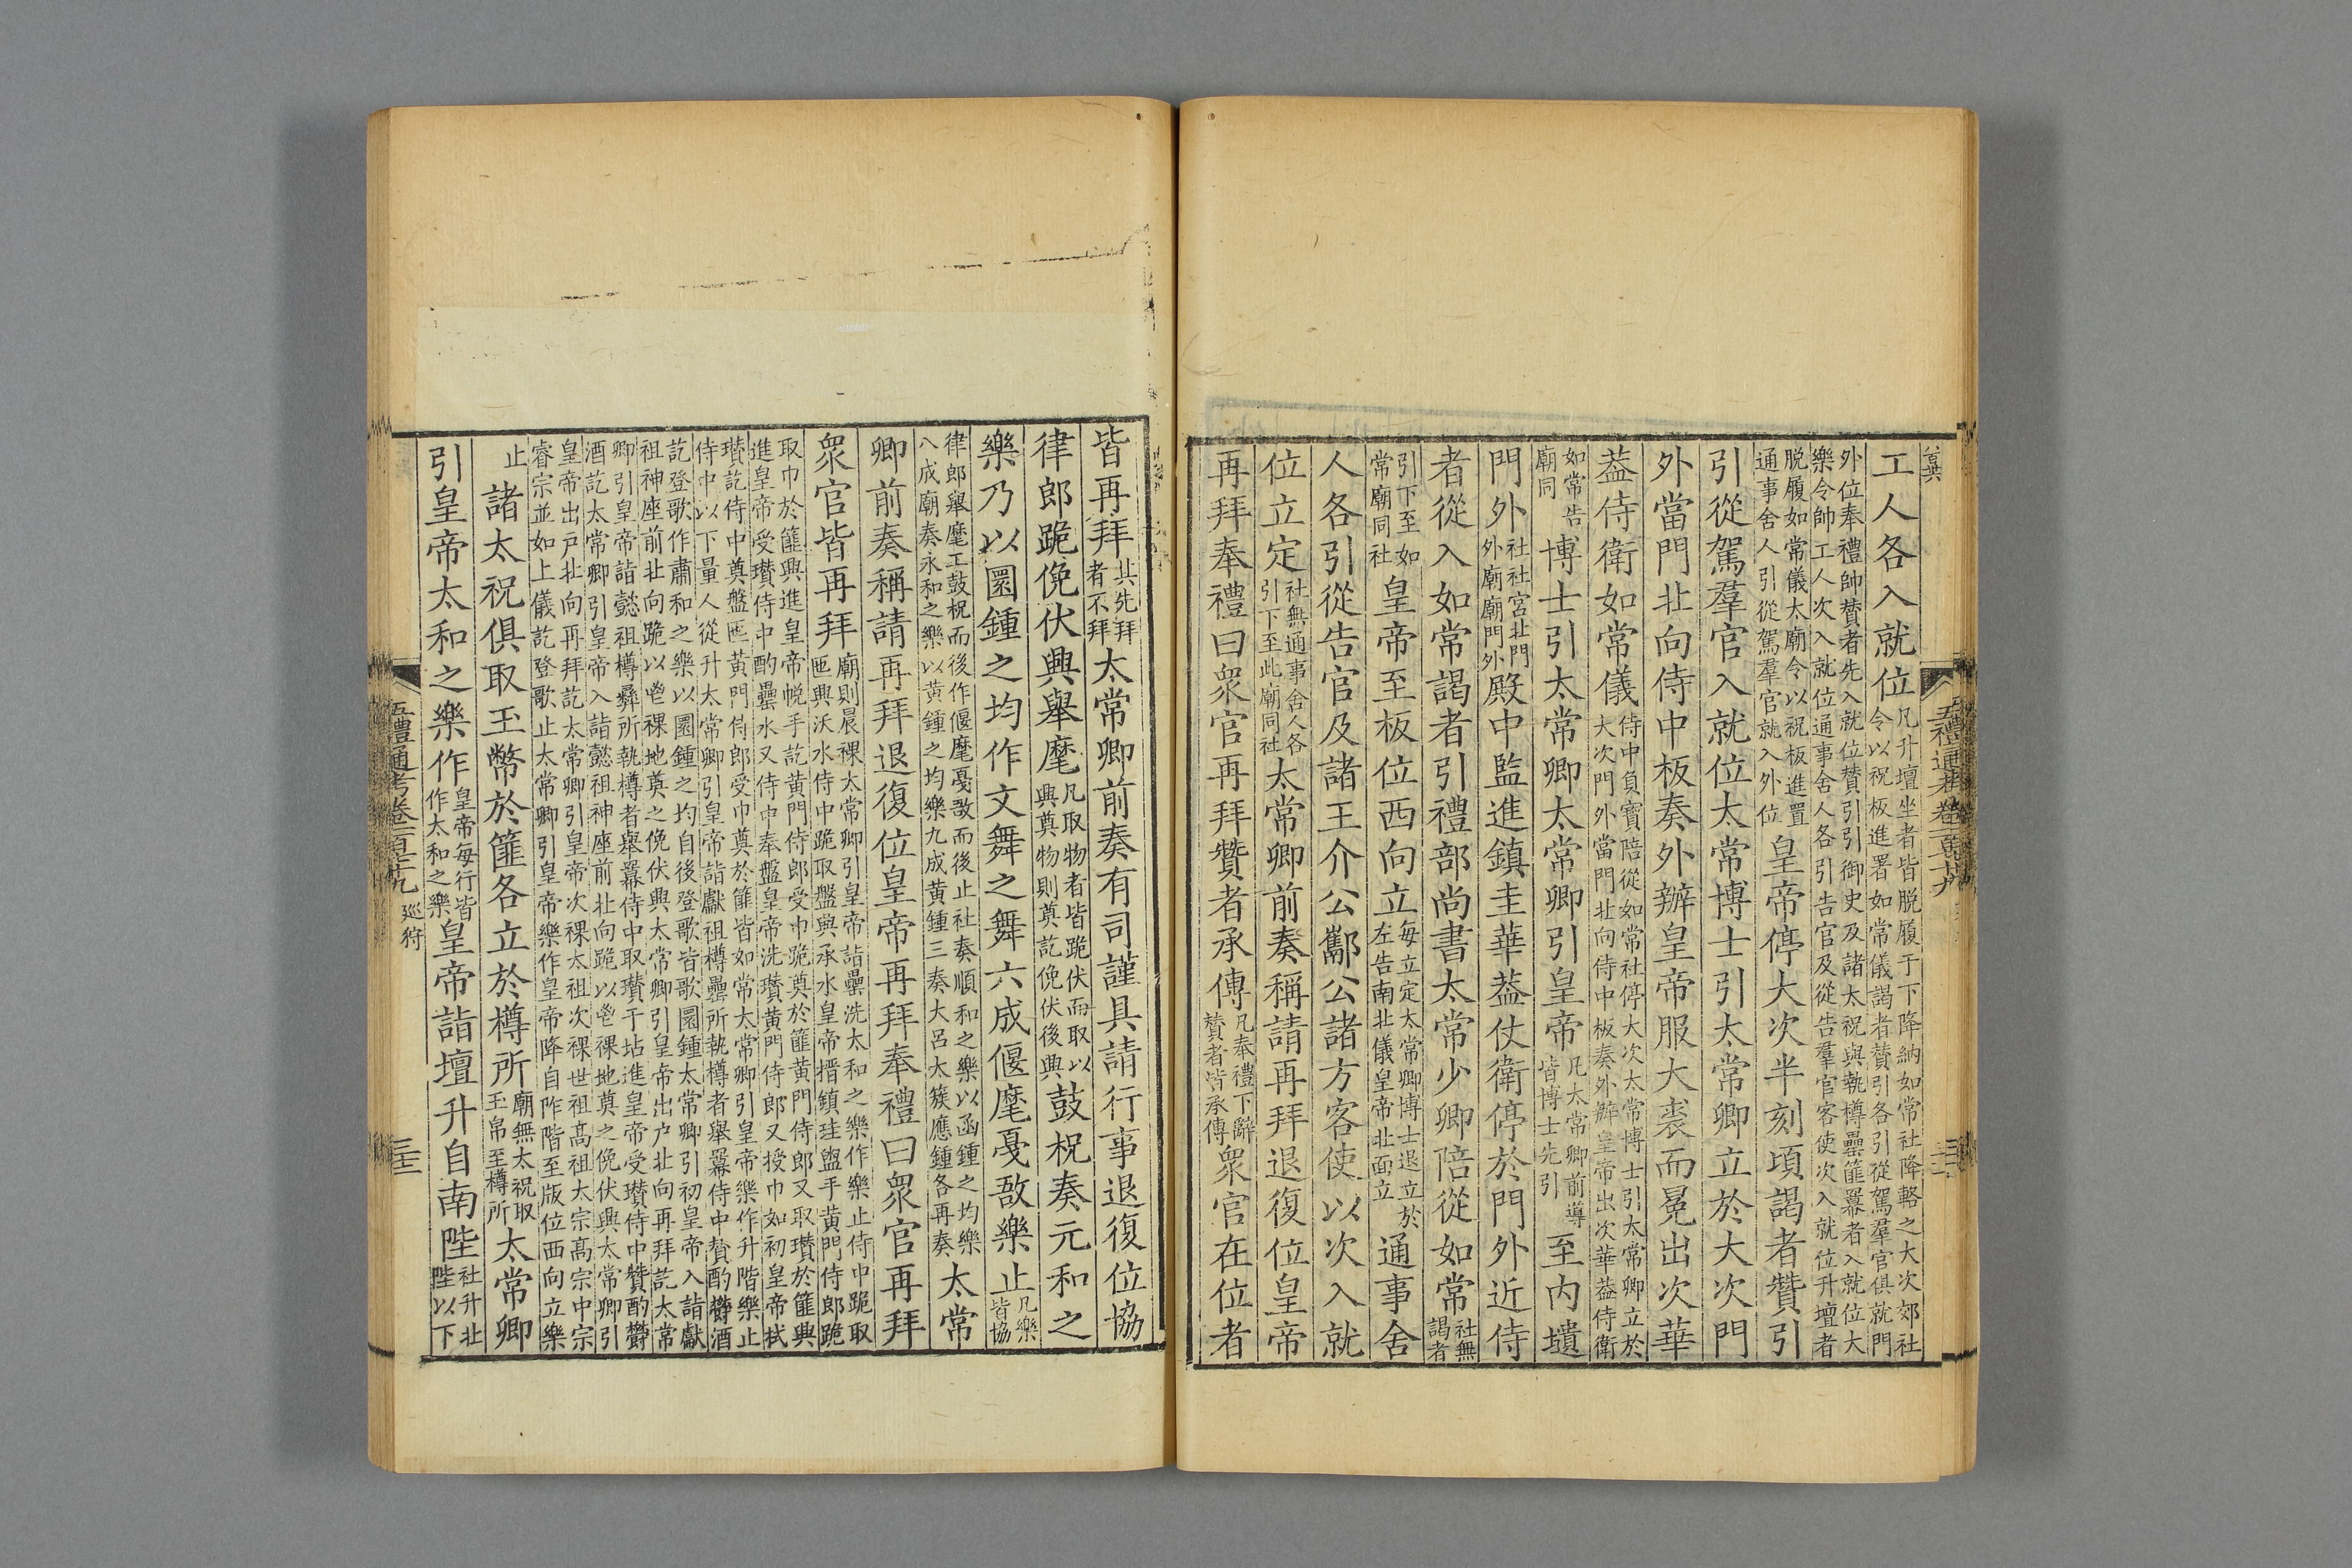 五禮通考卷一百七十九
工人各入就位凡升壇坐者皆脱履于下降納如常社降輅之大次郊社令以祝板進署如常儀謁者贊引各引從駕羣官俱就門
外位奉禮帥贊者先入就位贊引引御史及諸太祝與執樽罍篚羃者入就位大樂令帥工人次入就位通事舍人各引告官及從告羣官客使次入就位升壇者
脱履如常儀太廟令以祝板進置通事舍人引從駕羣官就入外位皇帝停大次半刻頃謁者贊引
引從駕羣官入就位太常博士引太常卿立於大次門
外當門北向侍中板奏外辦皇帝服大裘而冕出次華
葢侍衛如常儀侍中負寶陪從如常社停大次太常博士引太常卿立於大次門外當門北向侍中板奏外辦皇帝出次華葢侍衛
如常告廟同博士引太常卿太常卿引皇帝凡太常卿前導皆博士先引至内壝
門外社社宮北門外廟廟門外殿中監進鎮圭華葢仗衛停於門外近侍
者從入如常謁者引禮部尚書太常少卿陪從如常社無謁者
引下至如常廟同社皇帝至板位西向立每立定太常卿博士退立於左告南北儀皇帝北面立通事舍
人各引從告官及諸王介公酅公諸方客使以次入就
位立定社無通事舍人各引下至此廟同社太常卿前奏稱請再拜退復位皇帝
再拜奉禮曰眾官再拜贊者承傳凡奉禮下辭贊者皆承傳眾官在位者
皆再拜其先拜者不拜太常卿前奏有司謹具請行事退復位協
律郎跪俛伏興舉麾凡取物者皆跪伏而取以興奠物則奠訖俛伏後興鼓柷奏元和之
樂乃以圜鍾之均作文舞之舞六成偃麾戞敔樂止凡樂皆協
律郎舉麾工鼓柷而後作偃麾戞敔而後止社奏順和之樂以函鍾之均樂八成廟奏永和之樂以黃鍾之均樂九成黃鍾三奏大呂太簇應鍾各再奏太常
卿前奏稱請再拜退復位皇帝再拜奉禮曰眾官再拜
眾官皆再拜廟則晨祼太常卿引皇帝詣罍洗太和之樂作樂止侍中跪取匜興沃水侍中跪取盤興承水皇帝搢鎮珪盥手黃門侍郎跪
取巾於篚興進皇帝帨手訖黃門侍郎受巾跪奠於篚黃門侍郎又取瓚於篚興進皇帝受瓚侍中酌罍水又侍中奉盤皇帝洗瓚黃門侍郎又授巾如初皇帝拭
瓚訖侍中奠盤匜黃門侍郎受巾奠於篚皆如常太常卿引皇帝樂作升階樂止侍中以下量人從升太常卿引皇帝詣獻祖樽罍所執樽者舉羃侍中贊酌欝酒
訖登歌作肅和之樂以圜鍾之均自後登歌皆歌圜鍾太常卿引初皇帝入詣獻祖神座前北向跪以鬯祼地奠之俛伏興太常卿引皇帝出户北向再拜訖太常
卿引皇帝詣懿祖樽彝所執樽者舉羃侍中取瓚于坫進皇帝受瓚侍中贊酌欝酒訖太常卿引皇帝入詣懿祖神座前北向跪以鬯祼地奠之俛伏興太常卿引
皇帝出戸北向再拜訖太常卿引皇帝次祼太祖次祼世祖高祖太宗高宗中宗睿宗並如上儀訖登歌止太常卿引皇帝樂作皇帝降自阼階至版位西向立樂
止諸太祝俱取玉幣於篚各立於樽所廟無太祝取玉帛至樽所太常卿
引皇帝太和之樂作皇帝每行皆作太和之樂皇帝詣壇升自南陛社升北陛以下
五禮通考卷一百七十九 巡狩